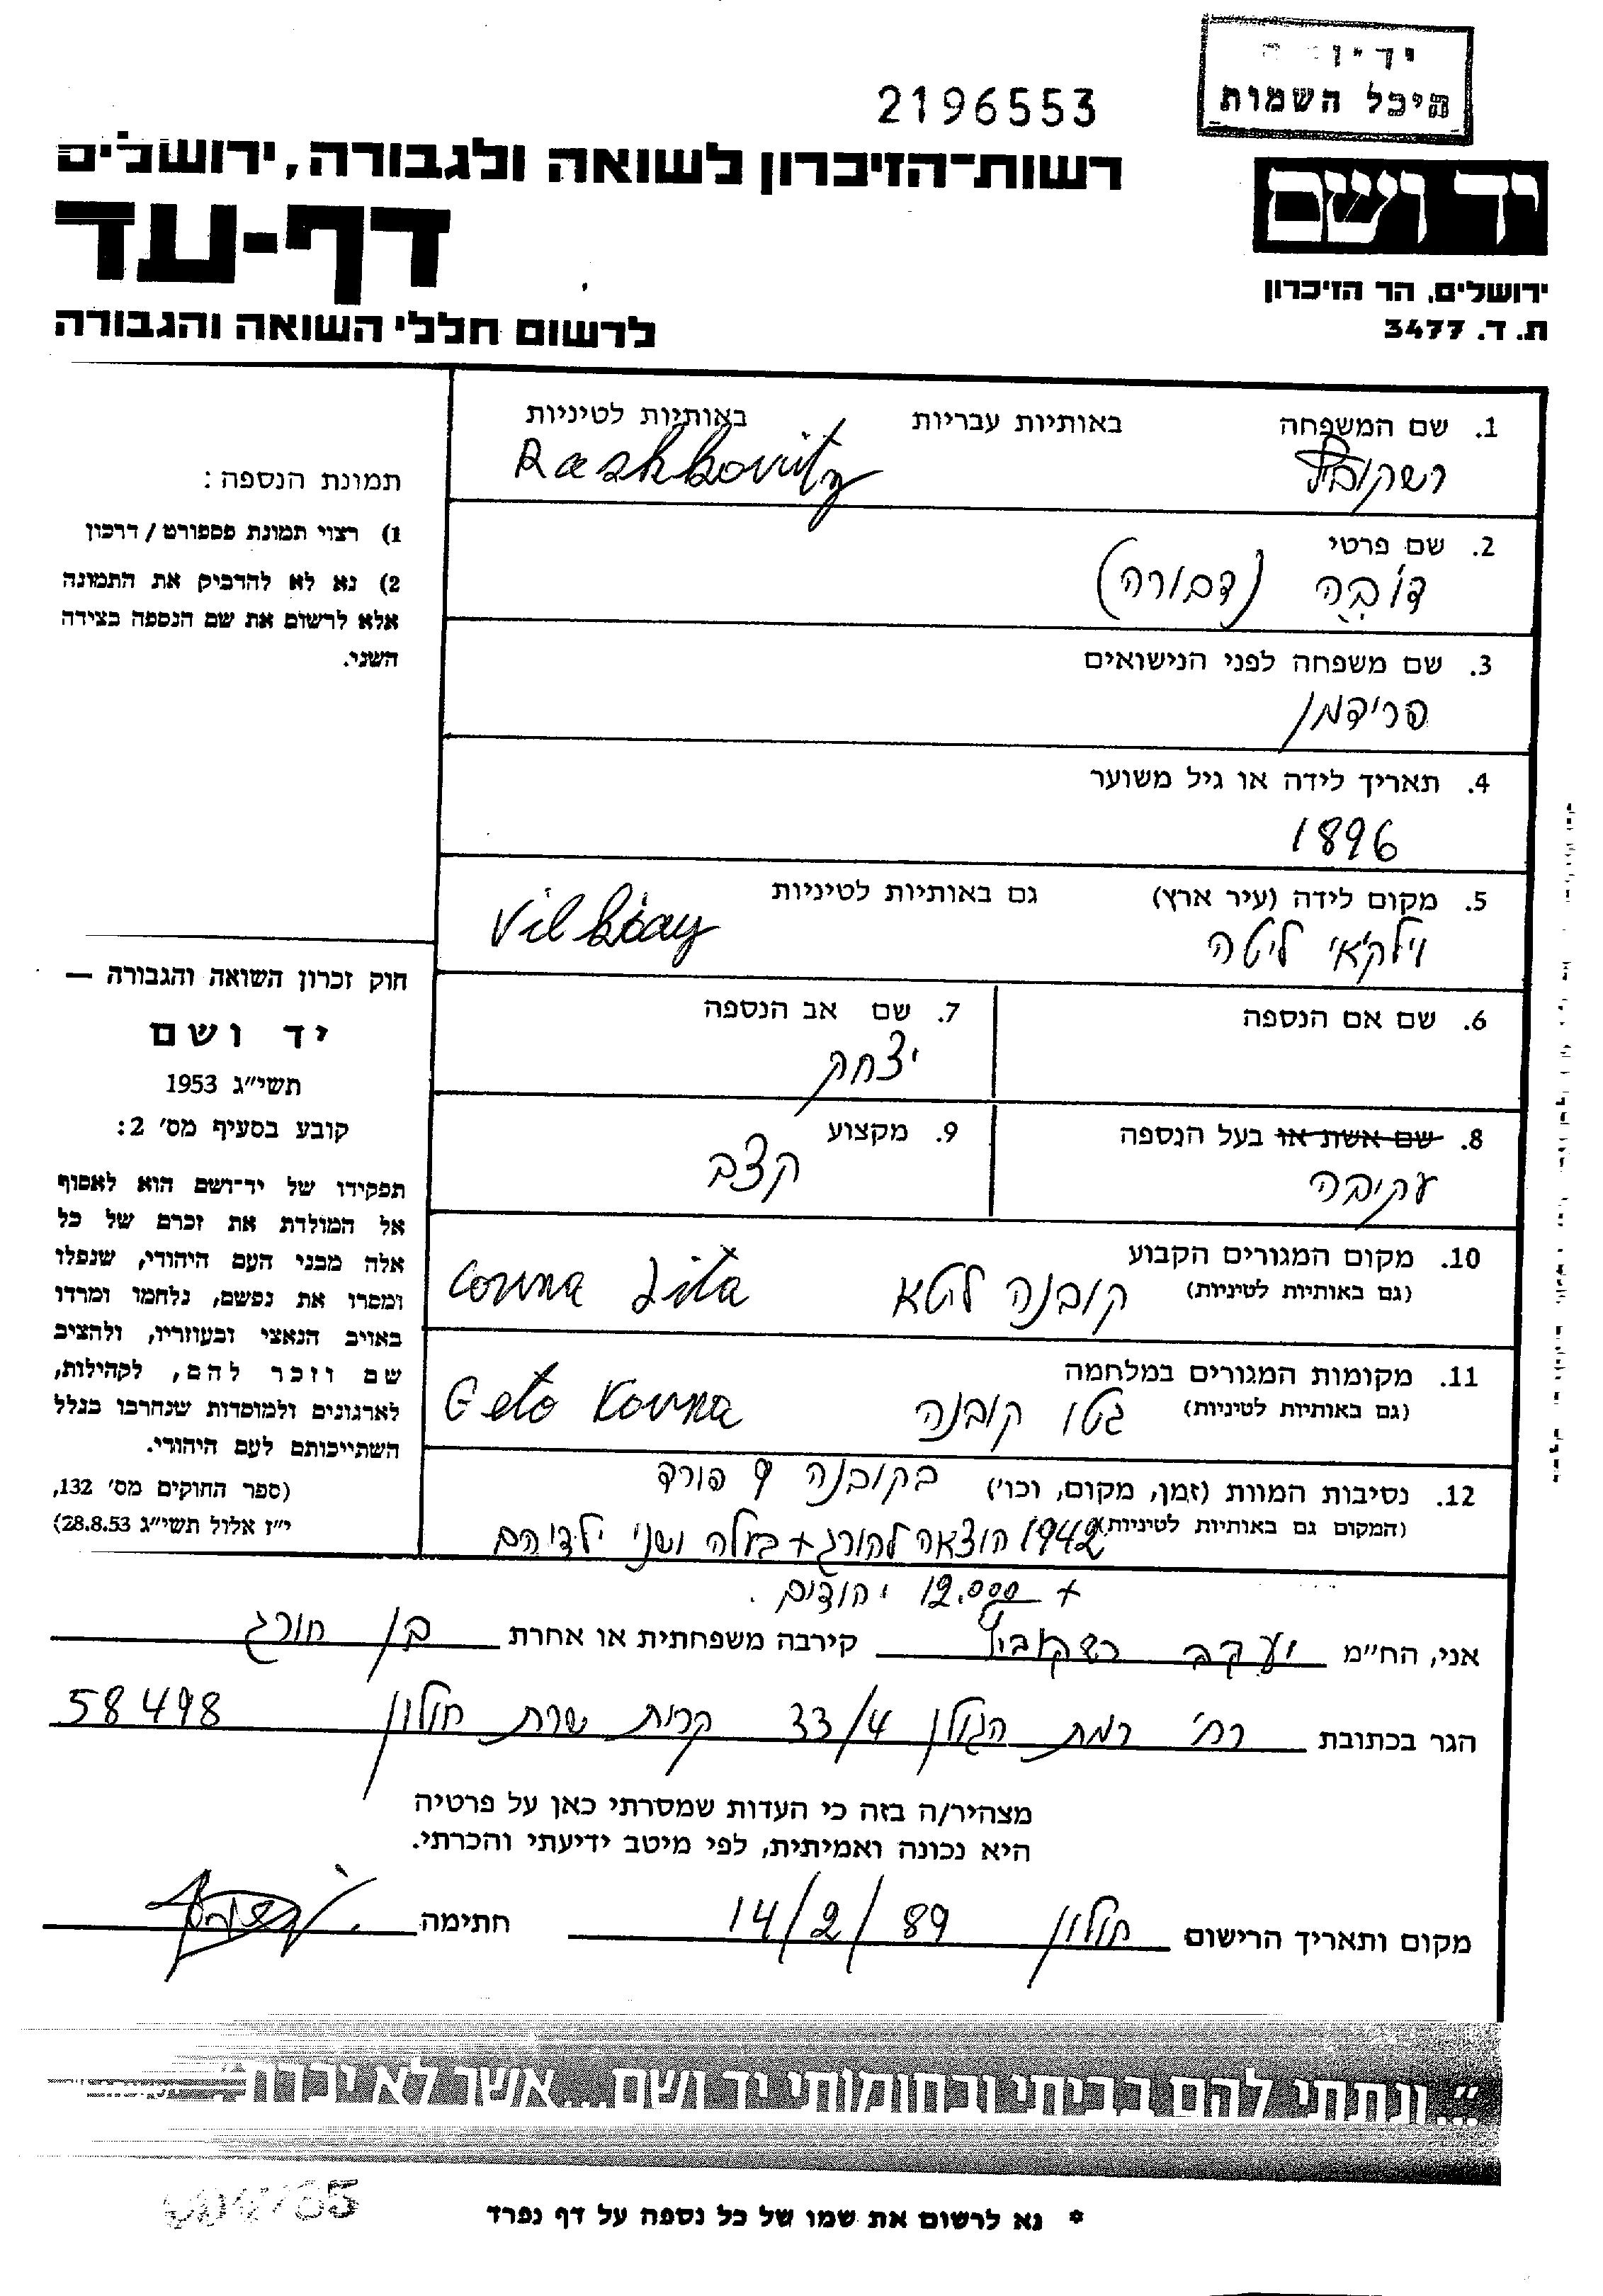 היכל השמות
2196553
רשות-הזיכרון לשואה ולגבורה, ירושלים
יד ושם
דף-עד
ירושלים, הר הזיכרון
ת. ד. 3477
לרשום חללי השואה והגבורה
1. שם המשפחה באותיות עבריות באותיות לטיניות
רשקוביץ Rashkovitz
2. שם פרטי
דובה (דבורה)
3. שם משפחה לפני הנישואים
פרידמן
4. תאריך לידה או גיל משוער
1896
5. מקום לידה (עיר ארץ) גם באותיות לטיניות
וילקאי ליטה Vilkiay
6. שם אם הנספה
7. שם אב הנספה
יצחק
8. שם אשת או בעל הנספה
עקיבה
9. מקצוע
קצב
10. מקום המגורים הקבוע
(גם באותיות לטיניות) קובנה ליטא Covna Lita
11. מקומות המגורים במלחמה
(גם באותיות לטיניות) גטו קובנה Geto Kovna
12. נסיבות המוות (זמן, מקום, וכו') בקובנה 9 פורד
(המקום גם באותיות לטיניות) 1942 הוצאה להורג + בעלה ושני ילדיהם
+ 12.000 יהודים.
תמונת הנספה:
1) רצוי תמונת פספורט / דרכון
2) נא לא להדביק את התמונה
אלא לרשום את שם הנספה בצידה
השני.
חוק זכרון השואה והגבורה —
יד ושם
תשי״ג 1953
קובע בסעיף מס' 2:
תפקידו של יד-ושם הוא לאסוף
אל המולדת את זכרם של כל
אלה מבני העם היהודי, שנפלו
ומסרו את נפשם, נלחמו ומרדו
באויב הנאצי ובעוזריו, ולהציב
שם וזכר להם, לקהילות,
לארגונים ולמוסדות שנחרבו בגלל
השתייכותם לעם היהודי.
(ספר החוקים מס' 132,
י״ז אלול תשי״ג 28.8.53)
אני, הח״מ יעקב רשקוביץ קירבה משפחתית או אחרת בן חורג
הגר בכתובת רח' רמת הגולן 33/4 קרית שרת חולון 58498
מצהיר/ה בזה כי העדות שמסרתי כאן על פרטיה
היא נכונה ואמיתית, לפי מיטב ידיעתי והכרתי.
מקום ותאריך הרישום חולון 14/2/89 חתימה
״...ונתתי להם בביתי ובחומותי יד ושם...אשר לא יכרת״
* נא לרשום את שמו של כל נספה על דף נפרד